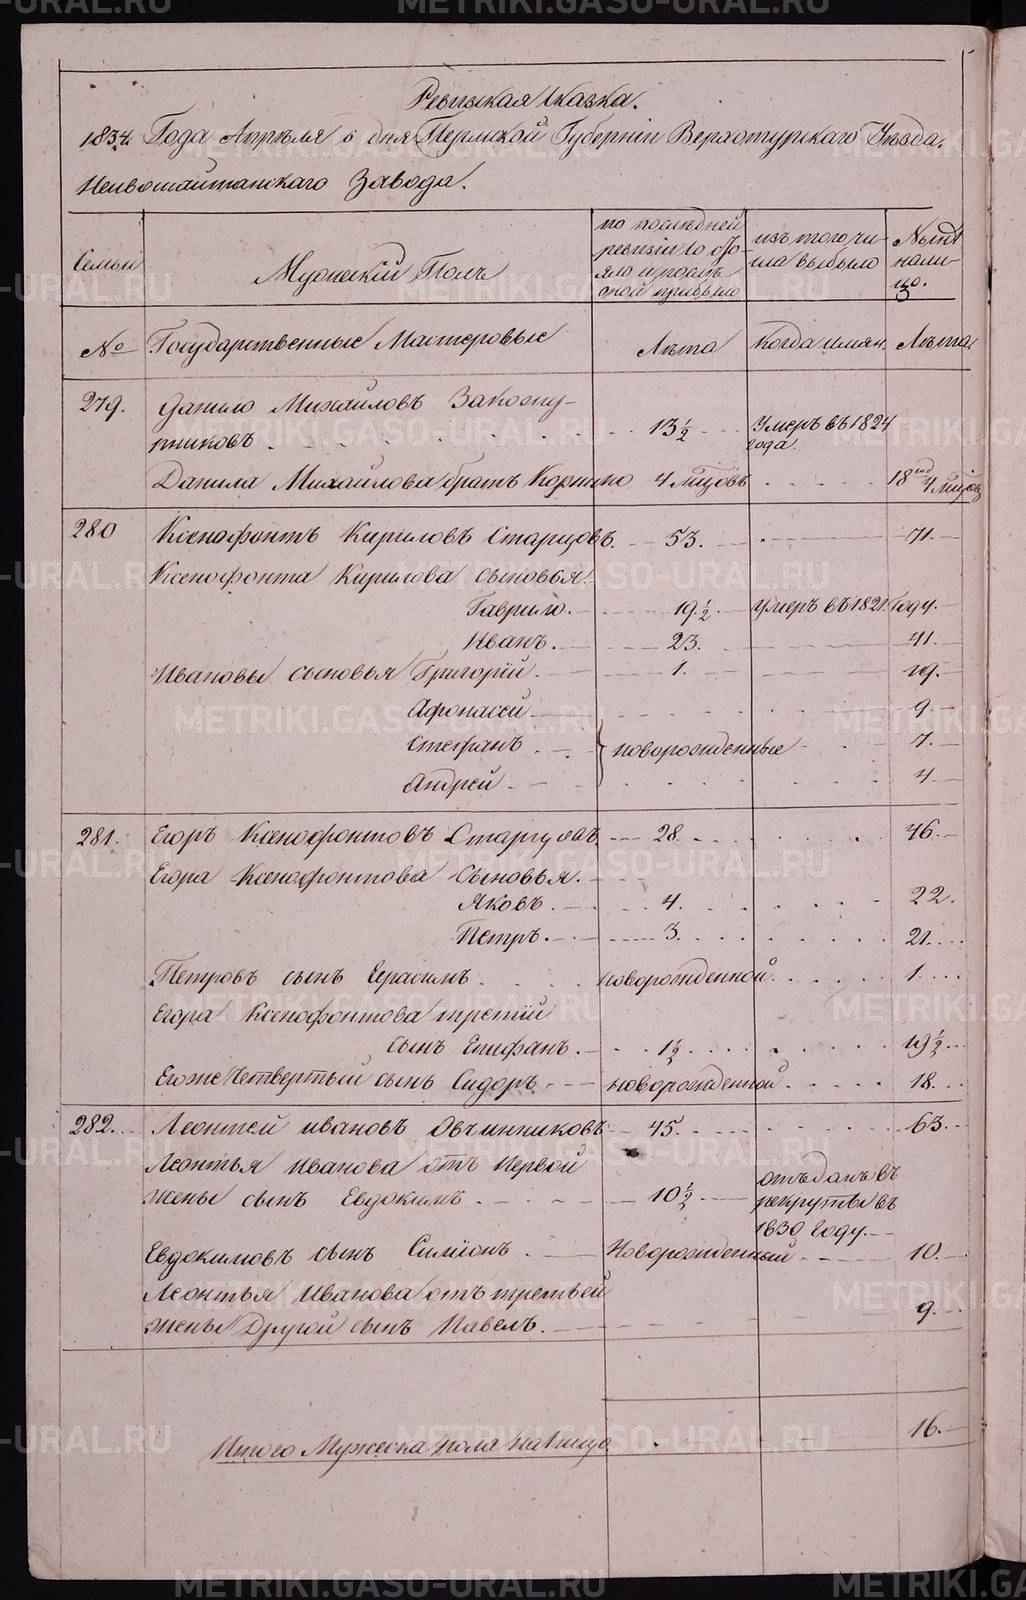 Ревизкая Сказка.
1834. Года Апреля 6 дня Пермской Губернии Верхотурскаго Уѣзда.
Нейвошайтанскаго Завода.
Семьи
Мужеский Полъ
по последней ревизии состояло и после оной прибыло
изъ того числа выбыло
Ныне на лицо.
№ Государственные Мастеровые Лѣта Когда имян. Лѣта
279. Данило Михайловъ Закожурниковъ 13½ Умеръ въ 1824 года.
Данила Михайлова братъ Корнило 4 мѣсѣцовъ 18 4 мѣсѣц
280 Ксенофонтъ Кириловъ Старцовъ. 53. 71.
Ксенофонта Кирилова сыновья
Гаврило. 19½ умеръ въ 1821. Году.
Иванъ. 23. 41.
Ивановы сыновья Григорий. 1. 19.
Афонасей 9.
Стефанъ новорожденные 7.
Андрей 4
281. Егоръ Ксенофонтовъ Старцовъ 28. 46.
Егора Ксенофонтова Сыновья.
Яковъ. 4. 22.
Петръ. 3. 21.
Петровъ сынъ Герасимъ новорожденной 1.
Егора Ксенофонтова третий
сынъ Епифанъ. 1½ 19½
Его же Четвертый сынъ Сидоръ новорожденной 18.
282. Леонтей Ивановъ Овчинниковъ 45. 63.
Леонтья Иванова отъ первой
жены сынъ Евдокимъ 10½ отъданъ въ рекруты въ 1830 Году.
Евдокимовъ сынъ Симионъ Новорожденный 10.
Леонтья Иванова отъ третьей
жены Другой сынъ Павелъ. 9.
Итого Мужеска пола налицо 16.
METRIKI.GASO-URAL.RU